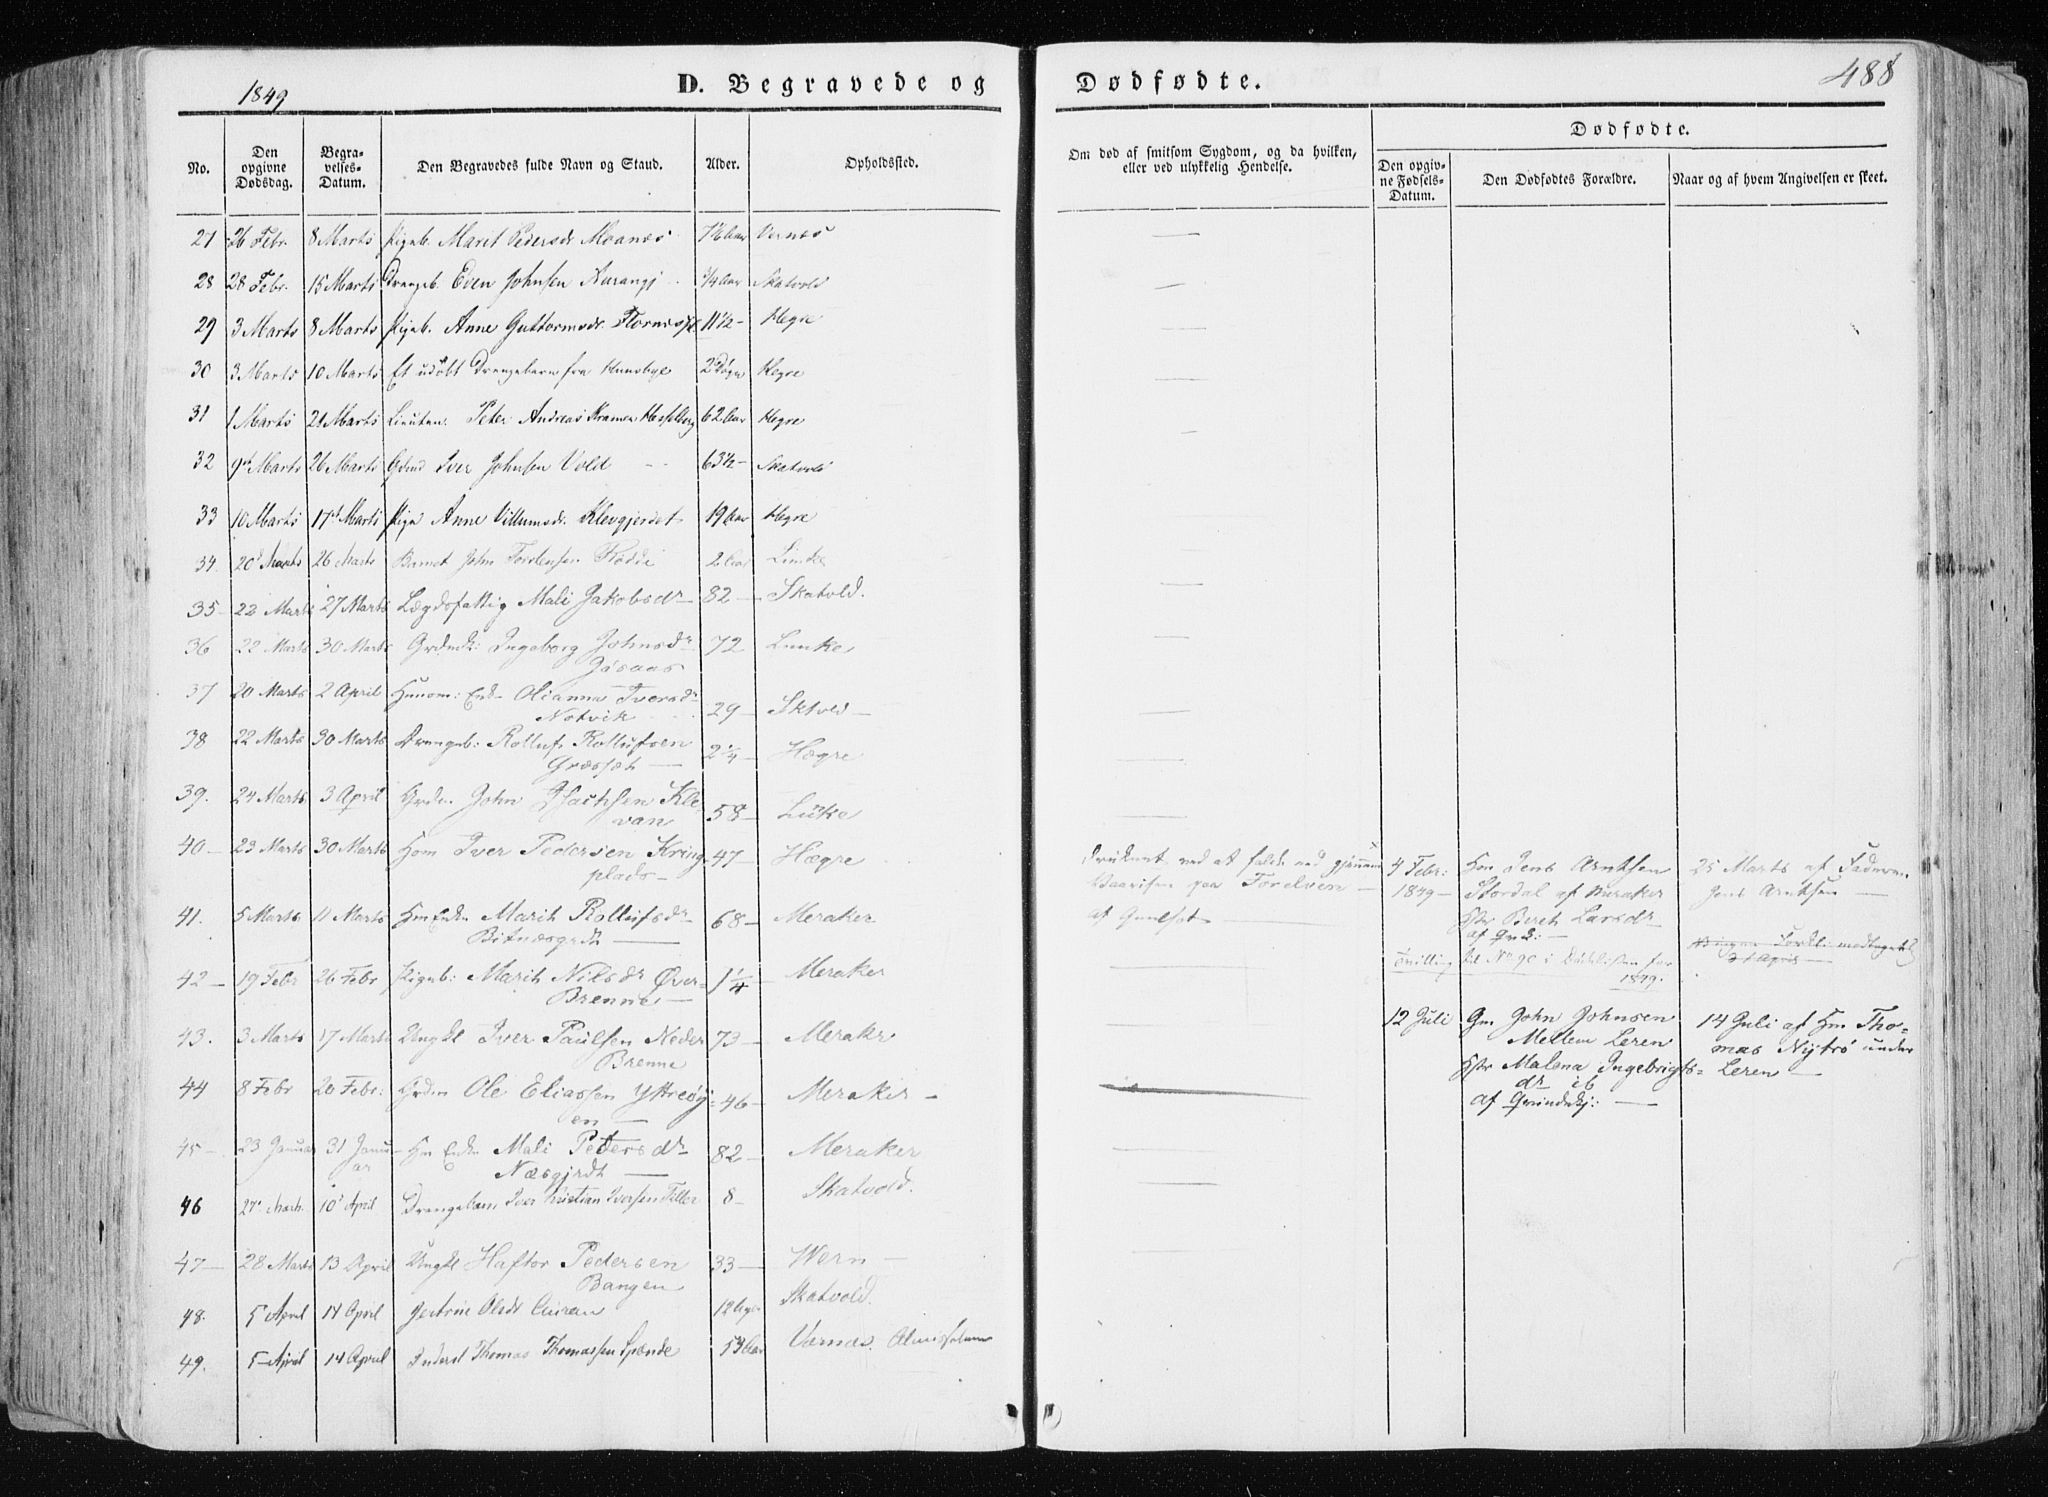 1849
D. Begravede og Dødfødte.
488
No.
Den opgivne Dødsdag.
Begravelses-Datum.
Den Begravedes fulde Navn og Stand.
Alder.
Opholdssted.
Om død af smitsom Sygdom, og da hvilken, eller ved ulykkelig Hendelse.
Dødfødte.
Den opgivne Fødsels-Datum.
Den Dødfødtes Forældre.
Naar og af hvem Angivelsen er skeet.
27 26 Febr. 8 Marts Pigeb. Marit Pedersdr Moanes 7½ Aar Vernes —
28 28 Febr. 15 Marts Drengeb. Even Johnsen ¾ Aar Skatvold —
29 3 Marts 8 Marts Pigeb. Anne Guttormsdr. 11½ – Hegre —
30 3 Marts 10 Marts Et udöbt Drengebarn fra 2 Døgn Hegre —
31 1 Marts 21 Marts Lieuten. Peter Andreas Kramer Hesselberg 62 Aar Hegre —
32 9de Marts 26 Marts Gdmd Iver Johnsen Vold 63½ – Skatvold —
33 10 Marts 17de Marts Pige Anne Villumsdr. Klevgjerdet 19 Aar Hegre —
34. 20de Marts 26 Marts Barnet John 2 Aar —
35 – 22 Marts 27 Marts Lægdsfattig Mali Jakobsdr – 82 — Skatvold. —
36 22 Marts 30 Marts Ingeborg Johnsdr 72 Lunke —
37 20 Marts 2 April Huusm: Enke Olianna Iversdr
Notvik 29 – Sktvld – —
38 22 Marts 30 Marts Drengeb: Rolluf Rollufsen
2¼ – Hægre —
39. 24 Marts 3 April Grdm John Isachsen Kle-
van 58 – Lüke —
40 – 23 Marts 30 Marts Hm Iver Pedersen Kring
plads – 47 – Hægre drukent ved at falde ned gjennem
Vaarisen paa Forelven —
af
4 Febr: Hm Jens Arntsen 25 Marts af Faderen
1849 – Stordal af Meraker Jens Arntsen —
Hstr Bereth Larsdr
af Qvk: —
Tvilling til No 90 i Daablisten for
1849.
41. 5 Marts 11 Marts Hm Enke Marith Rollufsdr
68 – Meraker
42 – 19 Febr 26 Febr Pigeb: Marith Nilsdr Øver-
Brenne — 1¼ – Meraker —
43. 3 Marts 17 Marts Ungkl Iver Paulsen Neder
Brenne 73 – Merakr —
12 Juli Gm John Johnsen 14 Juli af Hm Tho-
Mellem Leren mas Nytrö under
Hstr Malena Ingebrigts= Leren —
dr ib
af Qvindekj: —
44 8 Febr 20 Febr: Grdm Ole Eliassen Yttreöy=
en — 46 – Meraker – —
45 – 23 Januar 31 Janu-
ar Hm Enke Mali Petersdr
Næsgjrdt — 82 – Meraker —
46 27de March 10de April Drengebarn Iver Kristian Iversen Filler 8 – Skatvold. —
47 – 28 Marts 13 April Ungkl Haftor Pedersen
Bangen 33 – Wern – —
48. 5 April 14 April Gertrine Olsdr 12 Skatvold.
49. 5 April 14 April Inderst Thomas Thomassen 53 Aar Værnes.